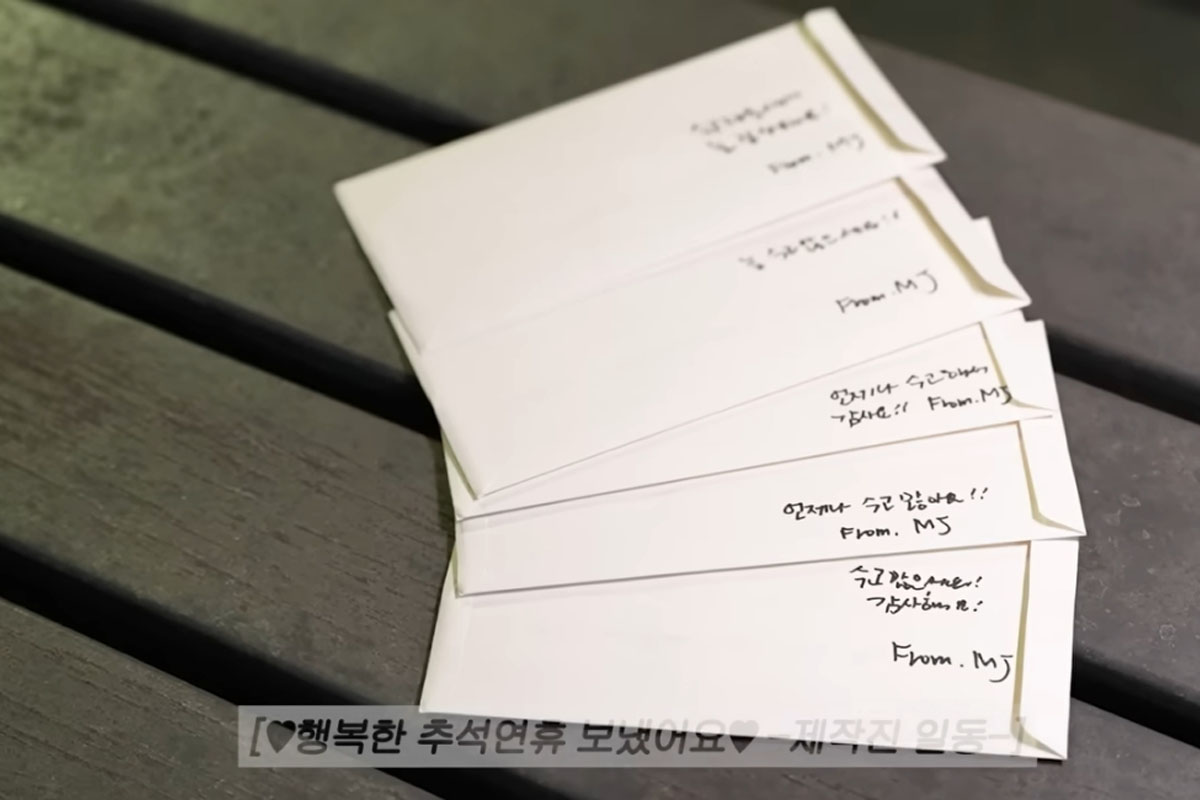 From. MJ
수고많으세요!!
From. MJ
언제나 수고해줘서
감사요!! From. MJ
언제나 수고많아요!!
From. MJ
수고많으세요!
감사해요!
From. MJ
[♥행복한 추석연휴 보냈어요♥ -제작진 일동-]